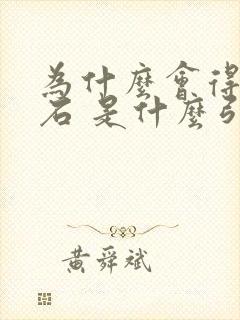 為什麼會得
石 是什麼
黃舜斌